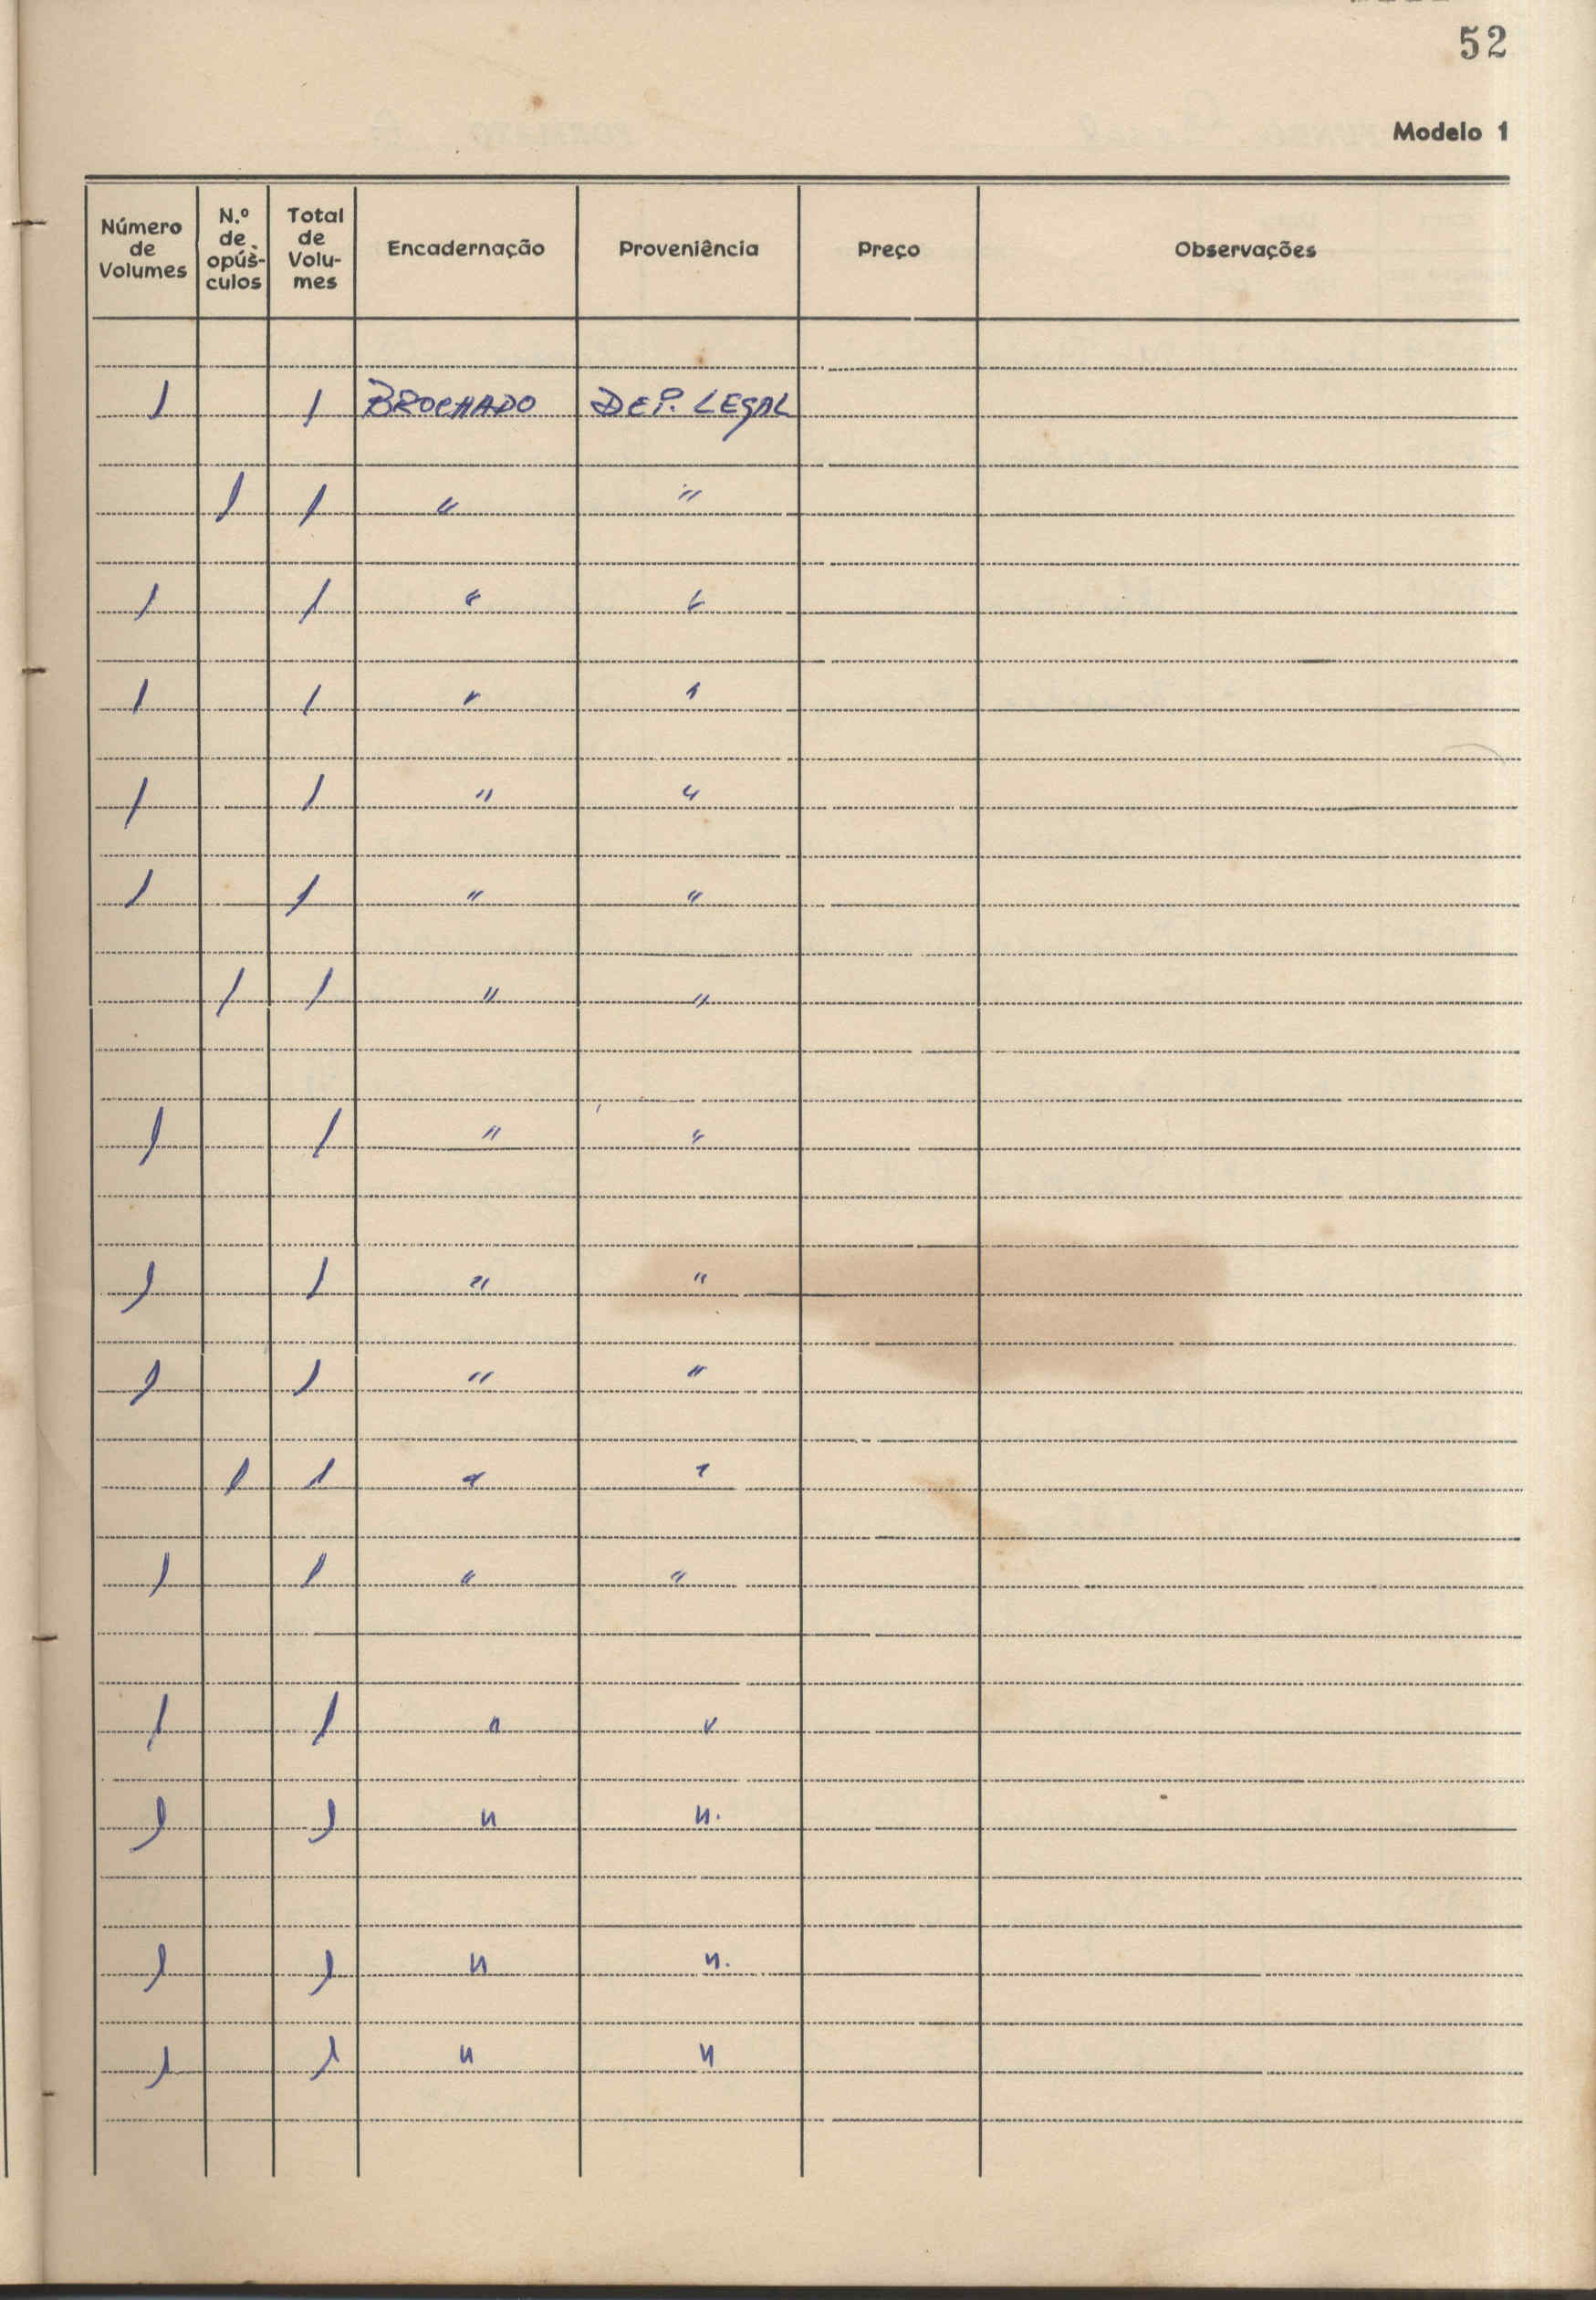 52
Modelo 1
Número de Volumes | N.º de opús-culos | Total de Volu-mes | Encadernação | Proveniência | Preço | Observações
1 | | 1 | BROCHADO | DEP. LEGAL
| 1 | 1 | " | "
1 | | 1 | " | "
1 | | 1 | " | "
1 | | 1 | " | "
1 | | 1 | " | "
| 1 | 1 | " | "
1 | | 1 | " | "
1 | | 1 | " | "
1 | | 1 | " | "
| 1 | 1 | " | "
1 | | 1 | " | "
1 | | 1 | " | "
1 | | 1 | " | "
1 | | 1 | " | "
1 | | 1 | " | "